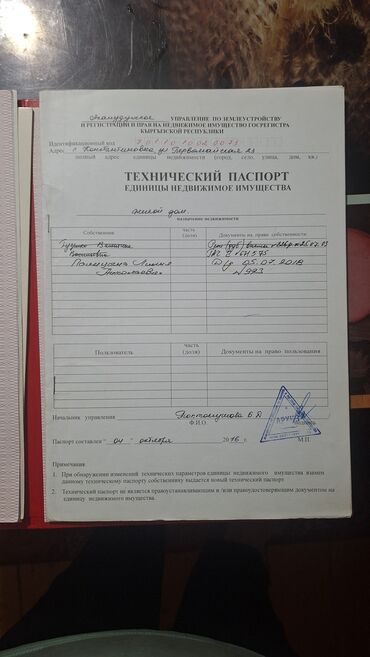 Аламудунское УПРАВЛЕНИЕ ПО ЗЕМЛЕУСТРОЙСТВУ
И РЕГИСТРАЦИИ ПРАВ НА НЕДВИЖИМОЕ ИМУЩЕСТВО ГОСРЕГИСТРА
КЫРГЫЗСКОЙ РЕСПУБЛИКИ
Идентификационный код
Адрес с Константиновка ул Первомайская
полный адрес единицы недвижимости (город, село, улица, дом, кв.)
ТЕХНИЧЕСКИЙ ПАСПОРТ
ЕДИНИЦЫ НЕДВИЖИМОЕ ИМУЩЕСТВА
жилой дом.
назначение недвижимости
Собственник
часть (доля)
Документы на право собственности
Николаевна
05.07.2018
№993
Пользователь
часть (доля)
Документы на право пользования
Начальник управления
Ф.И.О.
подпись
Паспорт составлен "04" октября 2016 г.
М.П.
Примечания
1. При обнаружении изменений технических параметров единицы недвижимого имущества взамен
данному техническому паспорту собственнику выдается новый технический паспорт
2. Технический паспорт не является правоустанавливающим и /или правоудостоверяющим документом на
единицу недвижимого имущества.